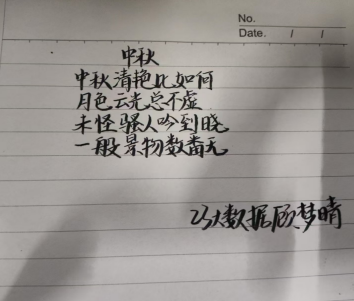 No.
Date. / /
中秋
中秋清艳比如何
月色云光总不虚
未怪骚人吟到晓
一般景物数番无
23大数据顾梦晴